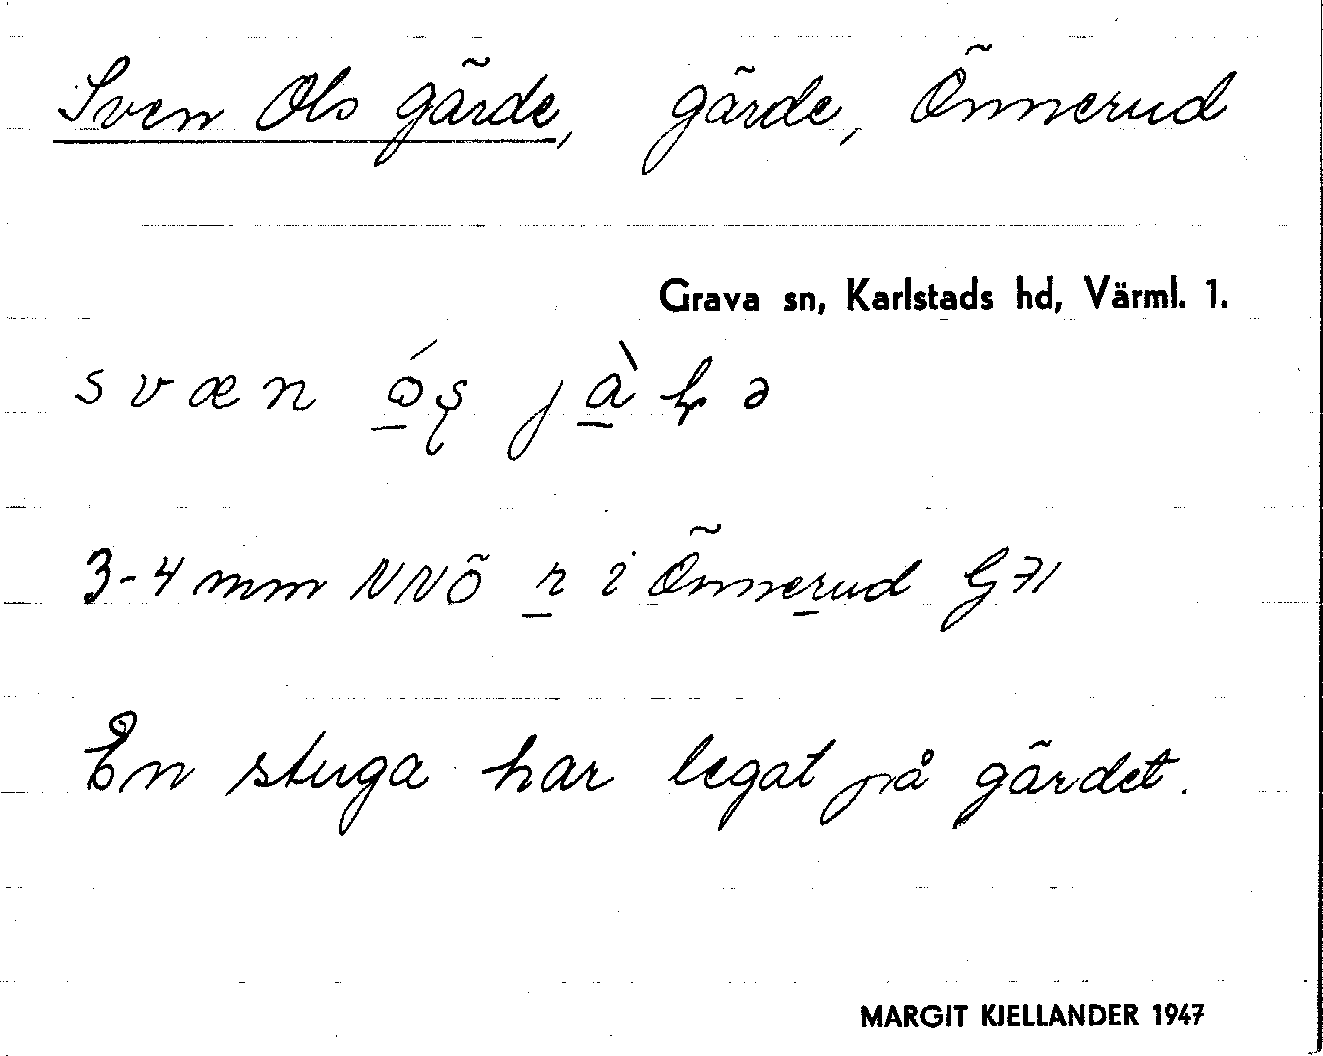 Sven Ols gärde, gärde, Önnerud
Grava sn, Karlstads hd, Värml. 1.
svæn
3-4 mm NNÖ r i Önnerud G71
En stuga har legat på gärdet.
MARGIT KJELLANDER 1947